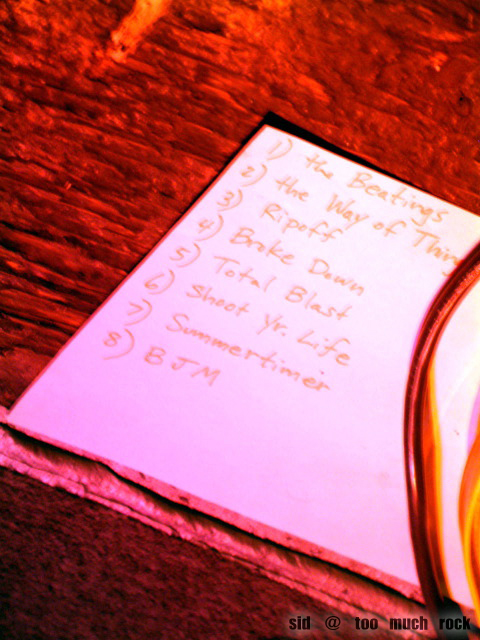 1) the Beatings
2) the Way of Thing
3) Ripoff
4) Broke Down
5) Total Blast
6) Shoot Yr. Life
7) Summertimer
8) BJM
sid @ too much rock